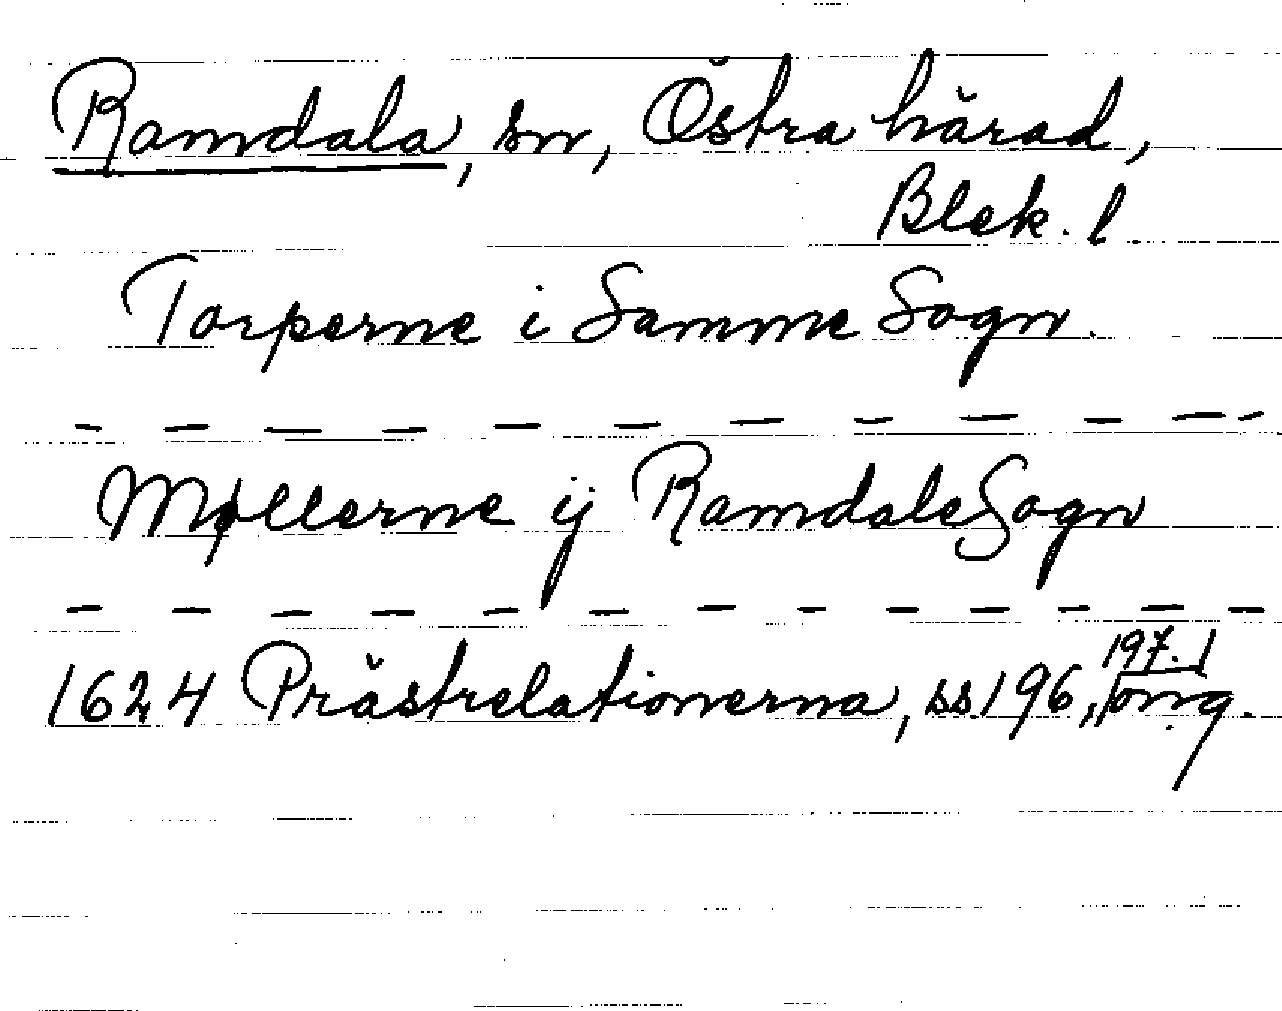 Ramdala, sn, Östra härad,
Blek. l.
Torperne i Samme Sogn.
– – – – – – – – – – –
Møllerne ij Ramdale Sogn
– – – – – – – – – – – – –
1624 Prästrelationerna, ss. 196, 197.